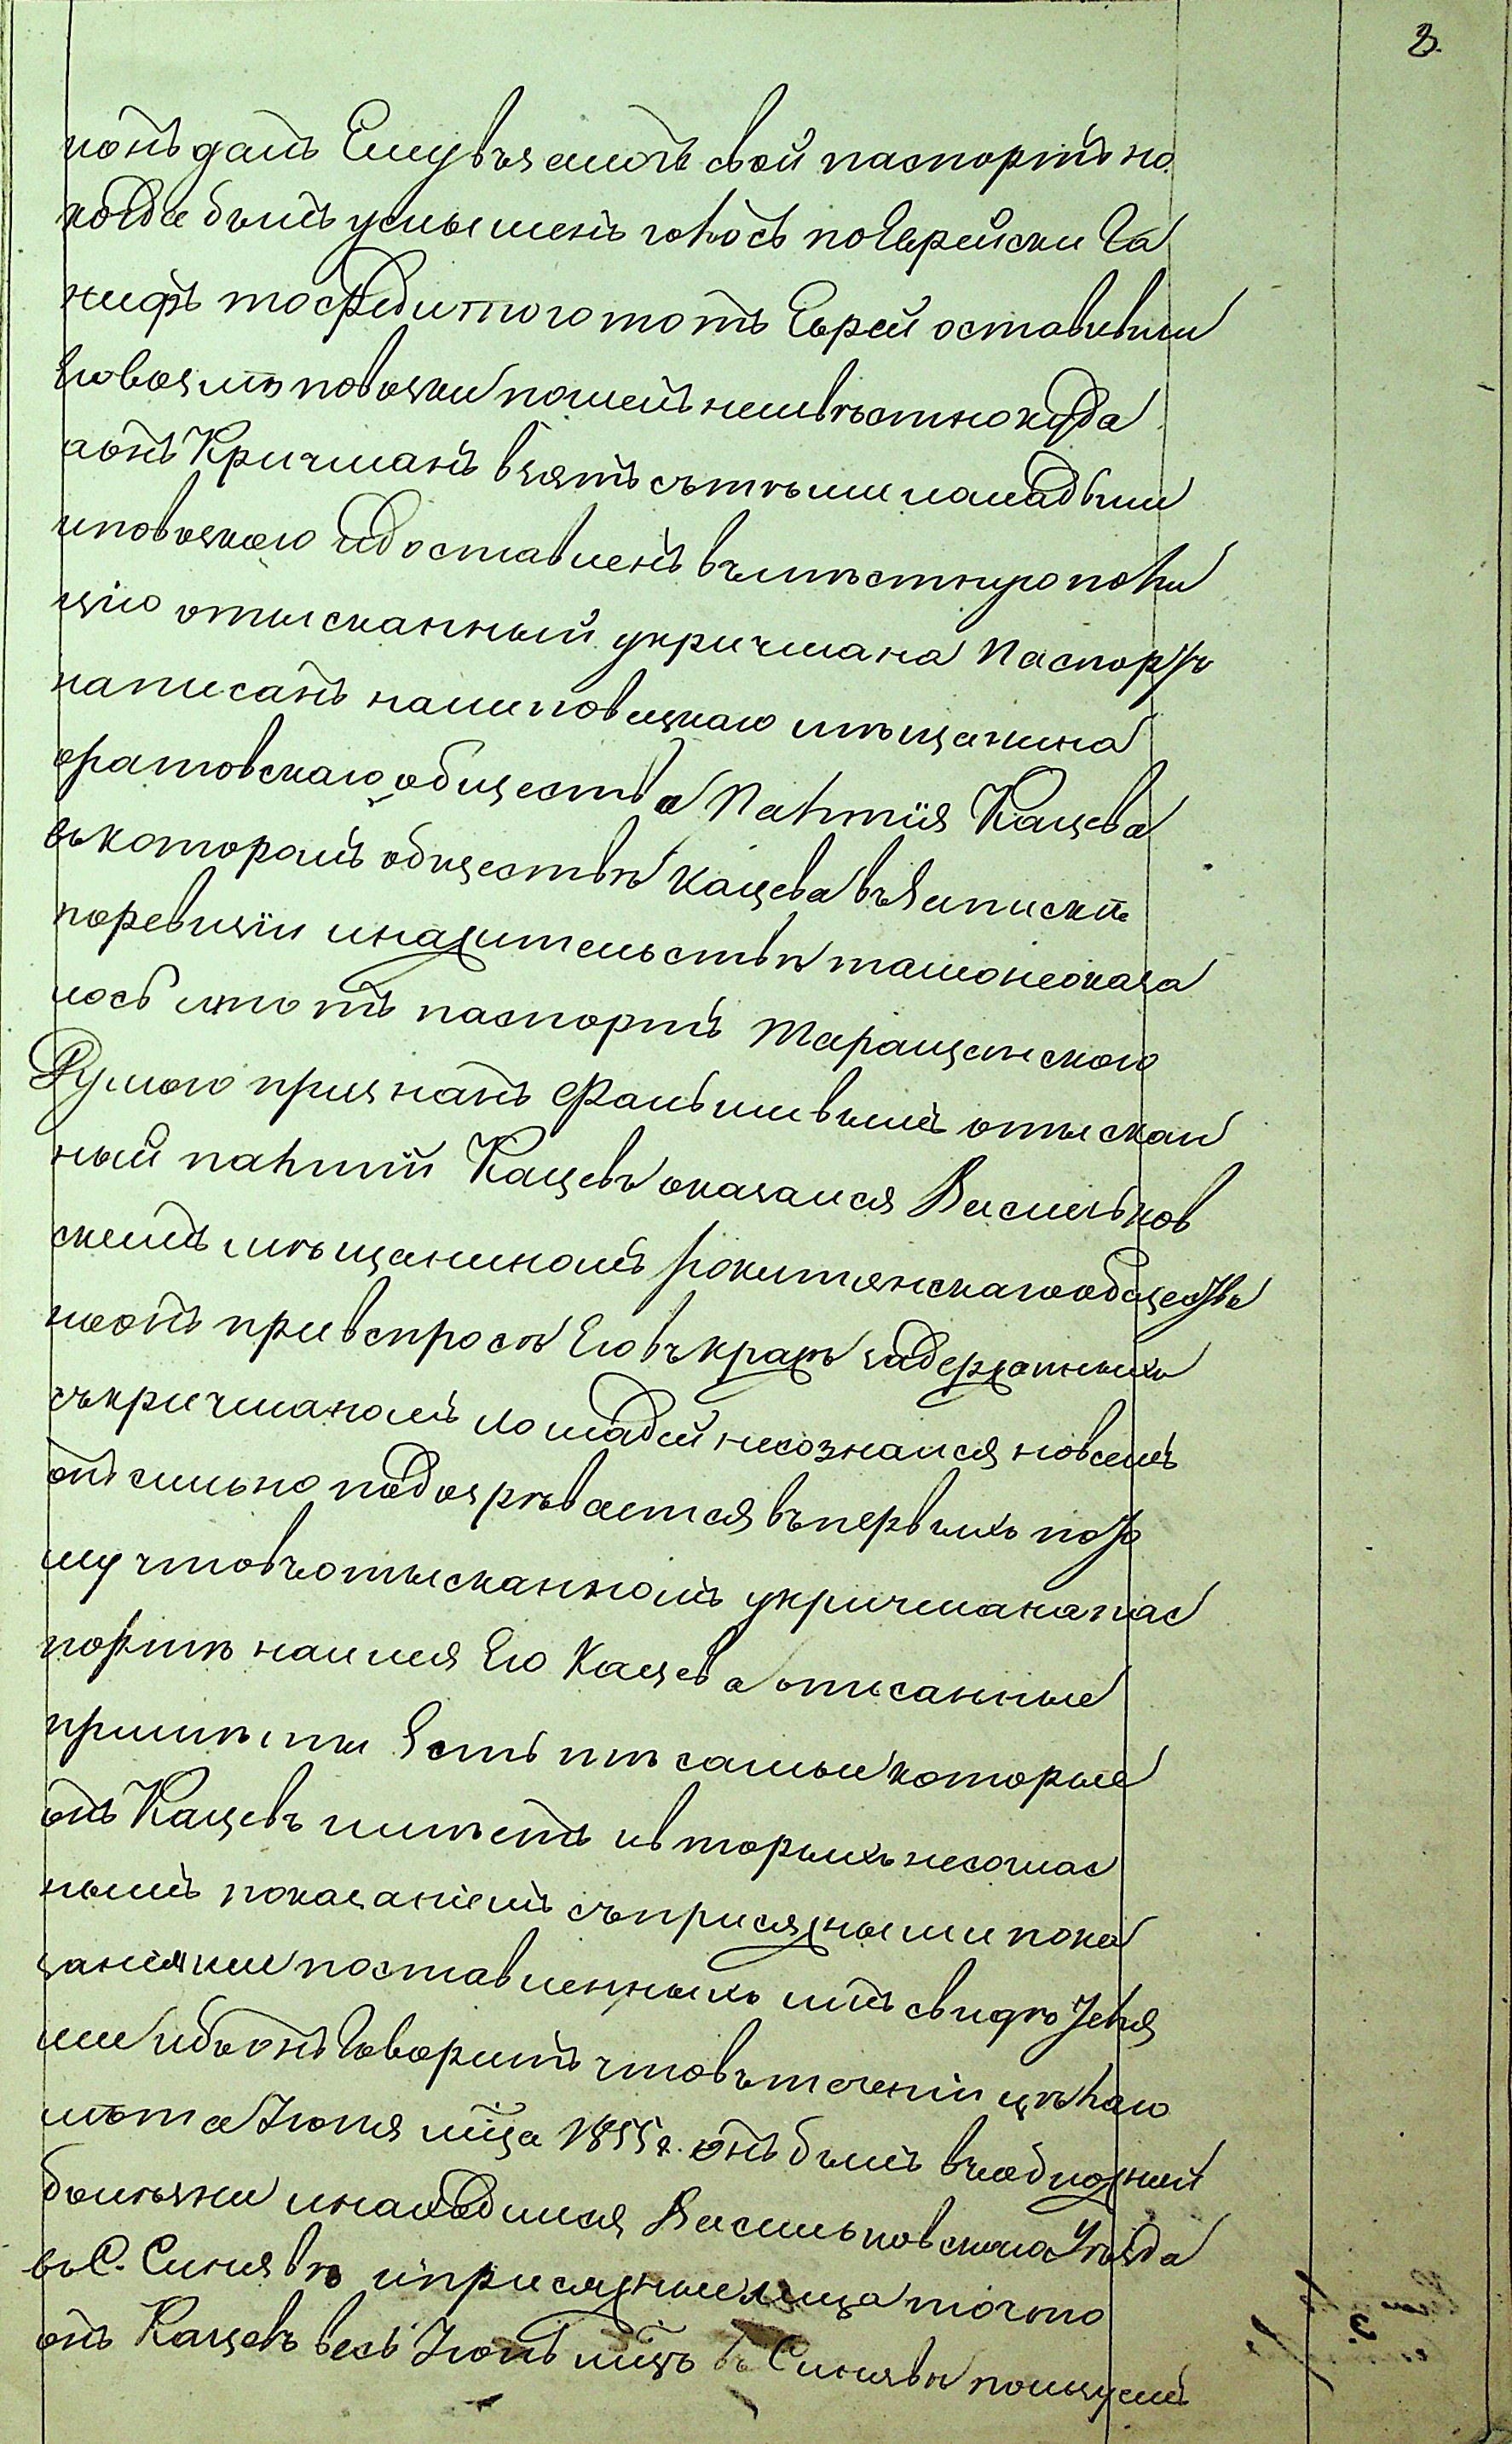 3.
нонъ датъ Ему взаметъ свой паспортъ но
когда былъ услышенъ голосъ поЕврейски Га
нифъ тосреди того тотъ Еврей оставивши
Еговозлѣ повозки пошелъ неизвѣстно куда
аонъ Кричманъ взятъ сътѣми лошадьми
иповозкою идоставленъ вмѣстную поли
цію отысканный укричмана Паспортъ
написанъ налиповецкаго мѣщанина
оратовскаго общества Палтія Кацева
вькоторомъ обществѣ Кацева взаписки
поревизіи инажительствѣ тамонеоказа
лось иэтотъ паспортъ таращанскою
Думою признанъ Фальшивымъ отыскан
ный палтій Кацевъ оказался Васильков
скимъ мѣщаниномъ рокитянскаго общества
ноонъ привспросѣ Его въкражѣ задержанныхъ
съкричманомъ лошадей несознался новсемъ
онъ сильно подозрѣвается въпервыхъ пото
му чтовъотысканномъ укричмана пас
портѣ наимя Его Кацева описанные
примѣты Есть тѣ самые которые
онъ Кацевъ имѣетъ ивторыхъ несоглас
нымъ показаніемъ съприсяжными пока
заніями поставленныхъ имъ свидѣтеля
ми ибо онъ Говоритъ чтовътеченіи цѣлаго
лѣта Іюня мца 1855 г. онъ былъ въободножной
болѣзни инаходился Васильковскаго Уѣзда
въ С. Синявѣ иприсяжные лица точто
онъ Кацевъ весь Іюнь мцъ въ Синявѣ